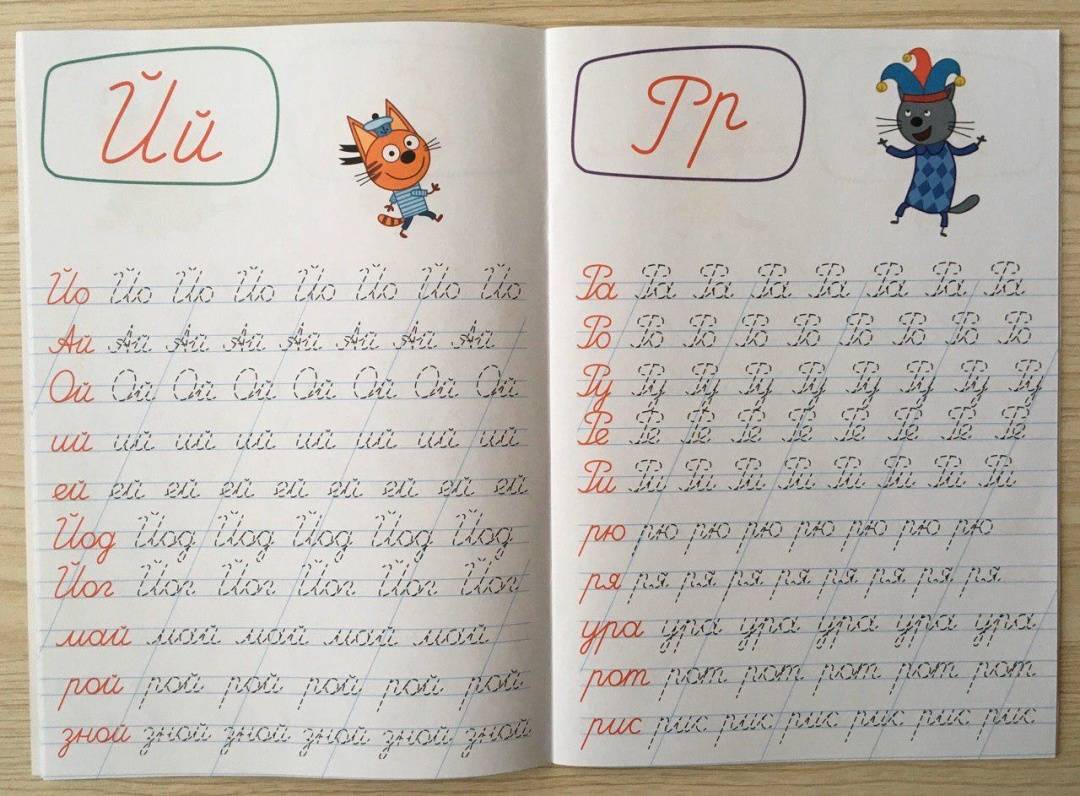 Йй
Йо Йо Йо Йо Йо Йо Йо Йо
Ай Ай Ай Ай Ай Ай Ай Ай
Ой Ой Ой Ой Ой Ой Ой Ой
ий ий ий ий ий ий ий ий
ей ей ей ей ей ей ей ей ей
Йод Йод Йод Йод Йод Йод
Йог Йог Йог Йог Йог Йог
май май май май май
рой рой рой рой рой рой
зной зной зной зной зной зной
Рр
Ра Ра Ра Ра Ра Ра Ра Ра
Ро Ро Ро Ро Ро Ро Ро Ро Ро
Ру Ру Ру Ру Ру Ру Ру Ру Ру
Ре Ре Ре Ре Ре Ре Ре Ре Ре
Ри Ри Ри Ри Ри Ри Ри Ри Ри
рю рю рю рю рю рю рю рю
ря ря ря ря ря ря ря ря ря
ура ура ура ура ура ура
рот рот рот рот рот рот
рис рис рис рис рис рис рис